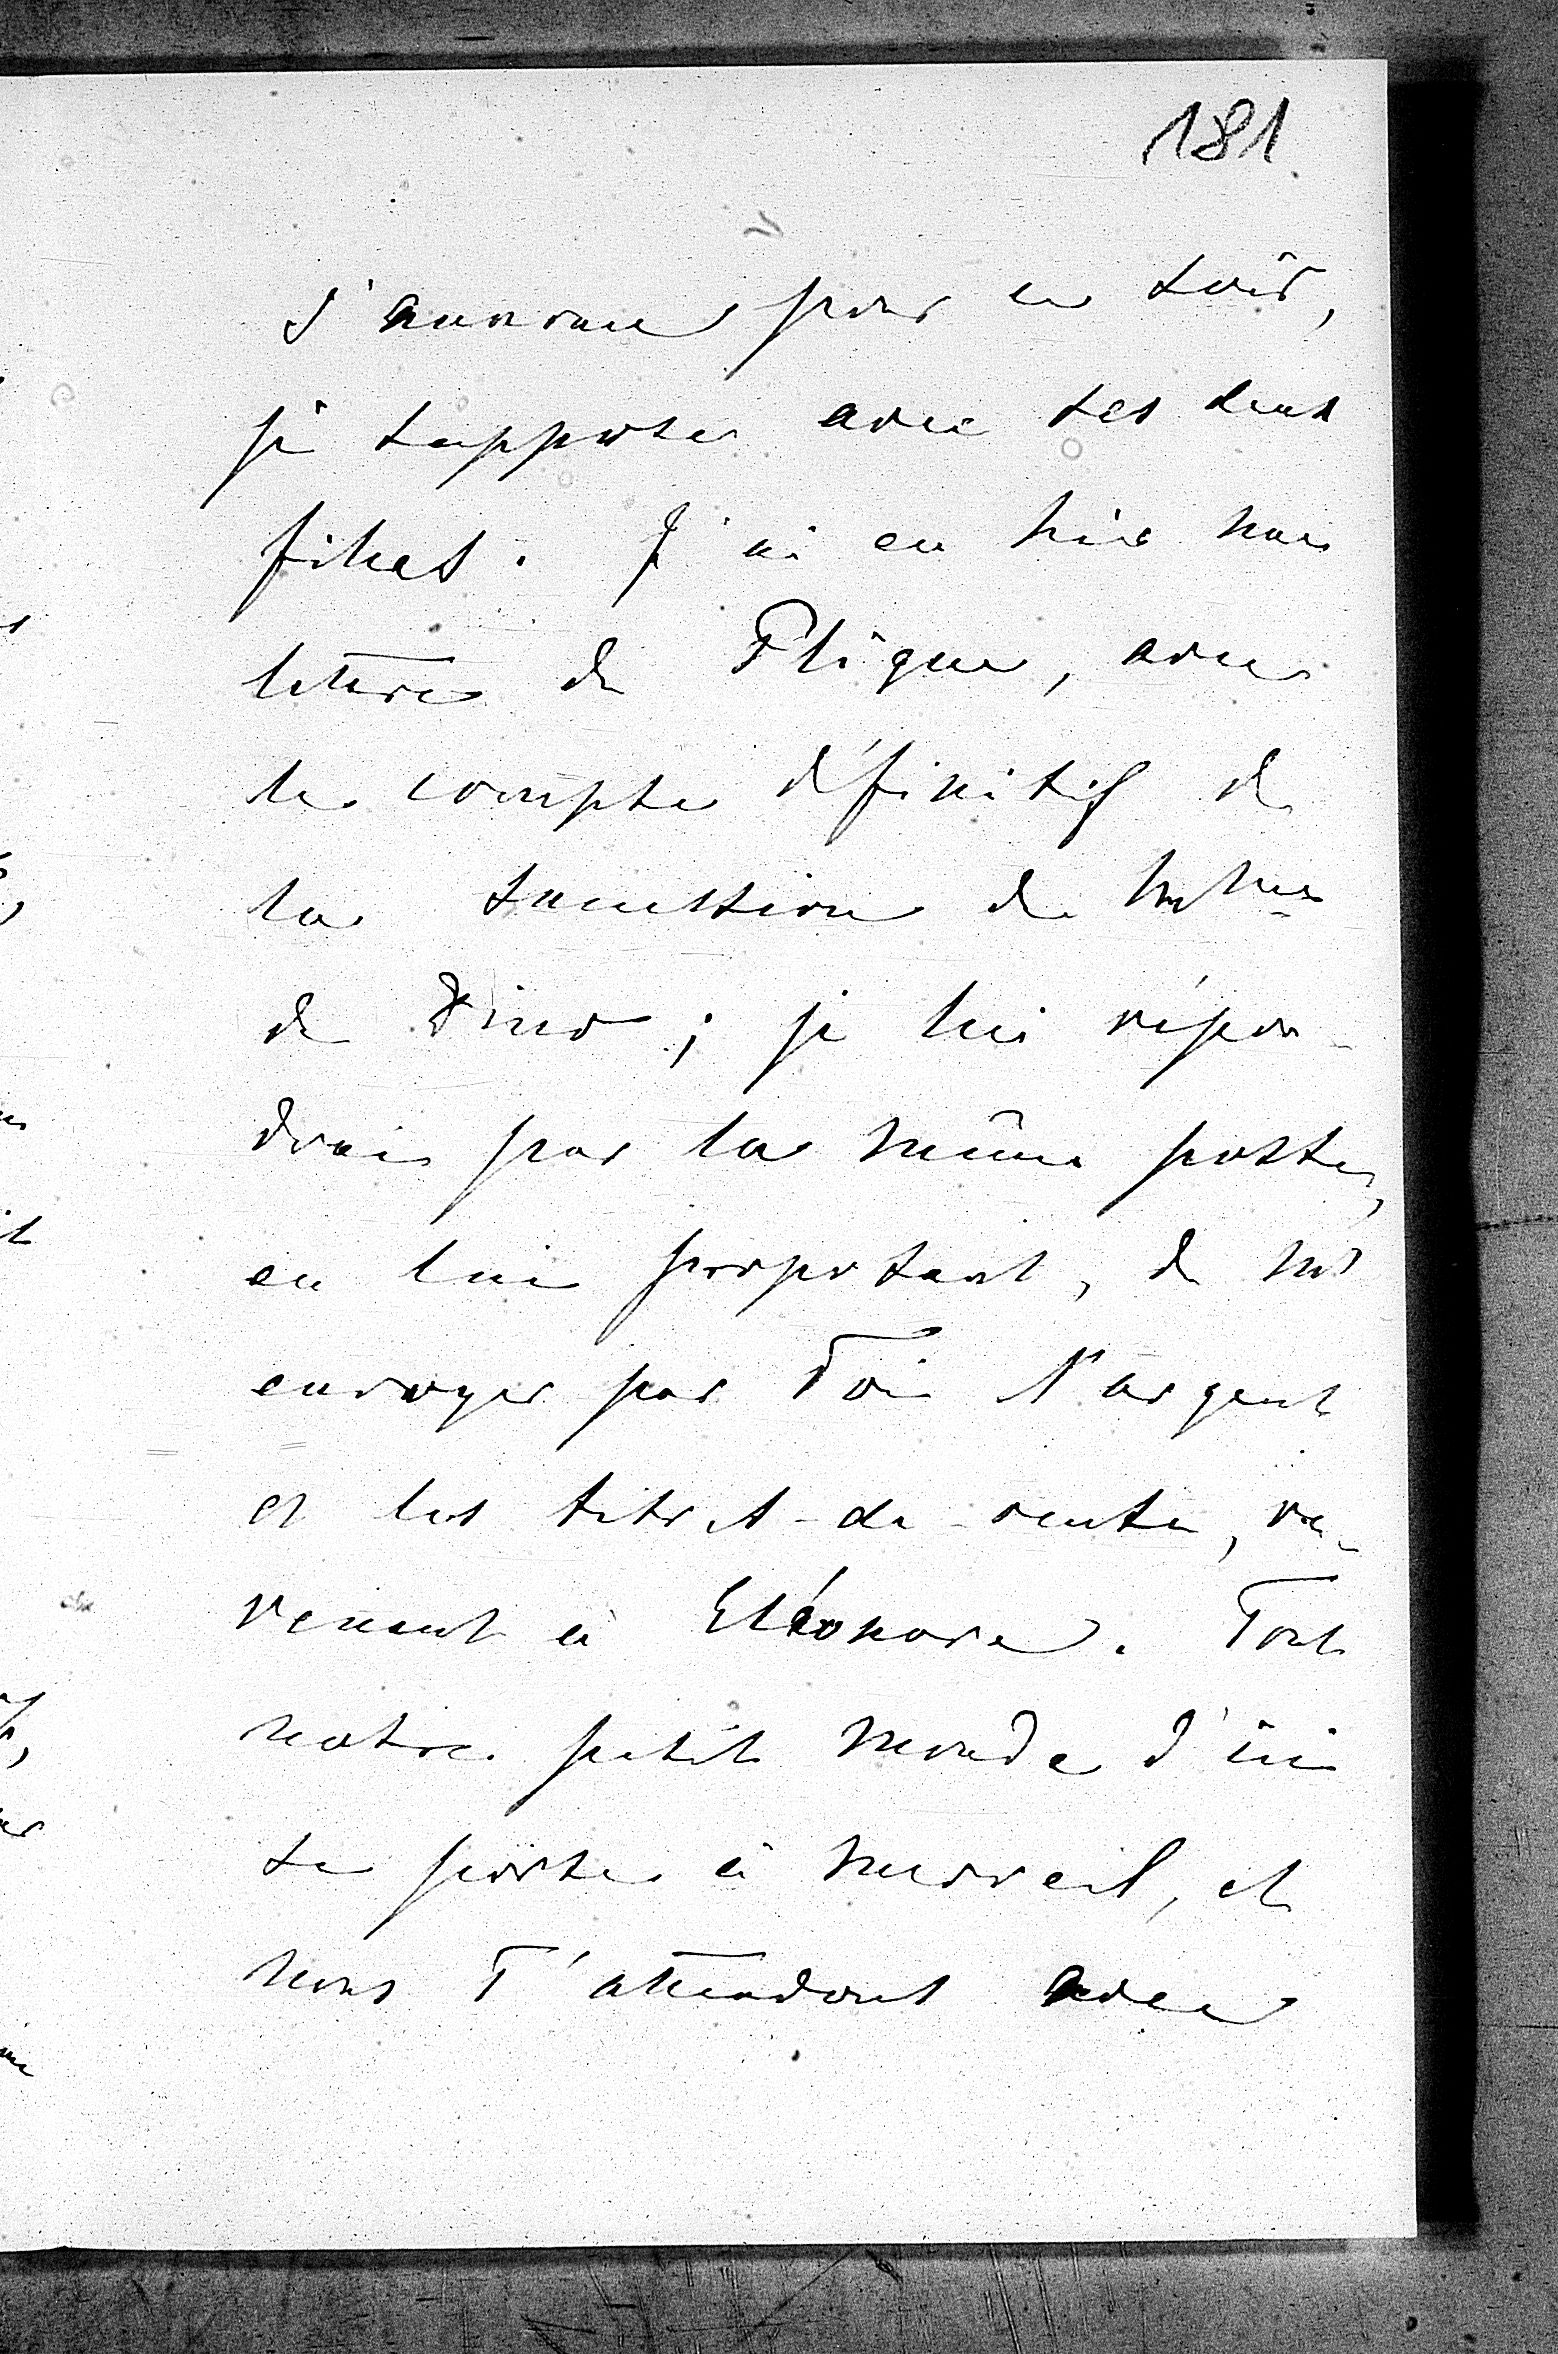 181
d'annoncé pour ce soir,
je suppose avec ses deux
filles. J'ai eu hier une
lettre de Plique, avec
le compte définitif de
la succession de Mme
de Dino; je lui répon-
drai par la même poste,
en lui proposant, de m'
envoyer par Toi l'argent
et les titres-de-rente, re-
venant à Eléonore. Tout
notre petit monde d'ici
se porte à merveil, et
nous T'attendons avec